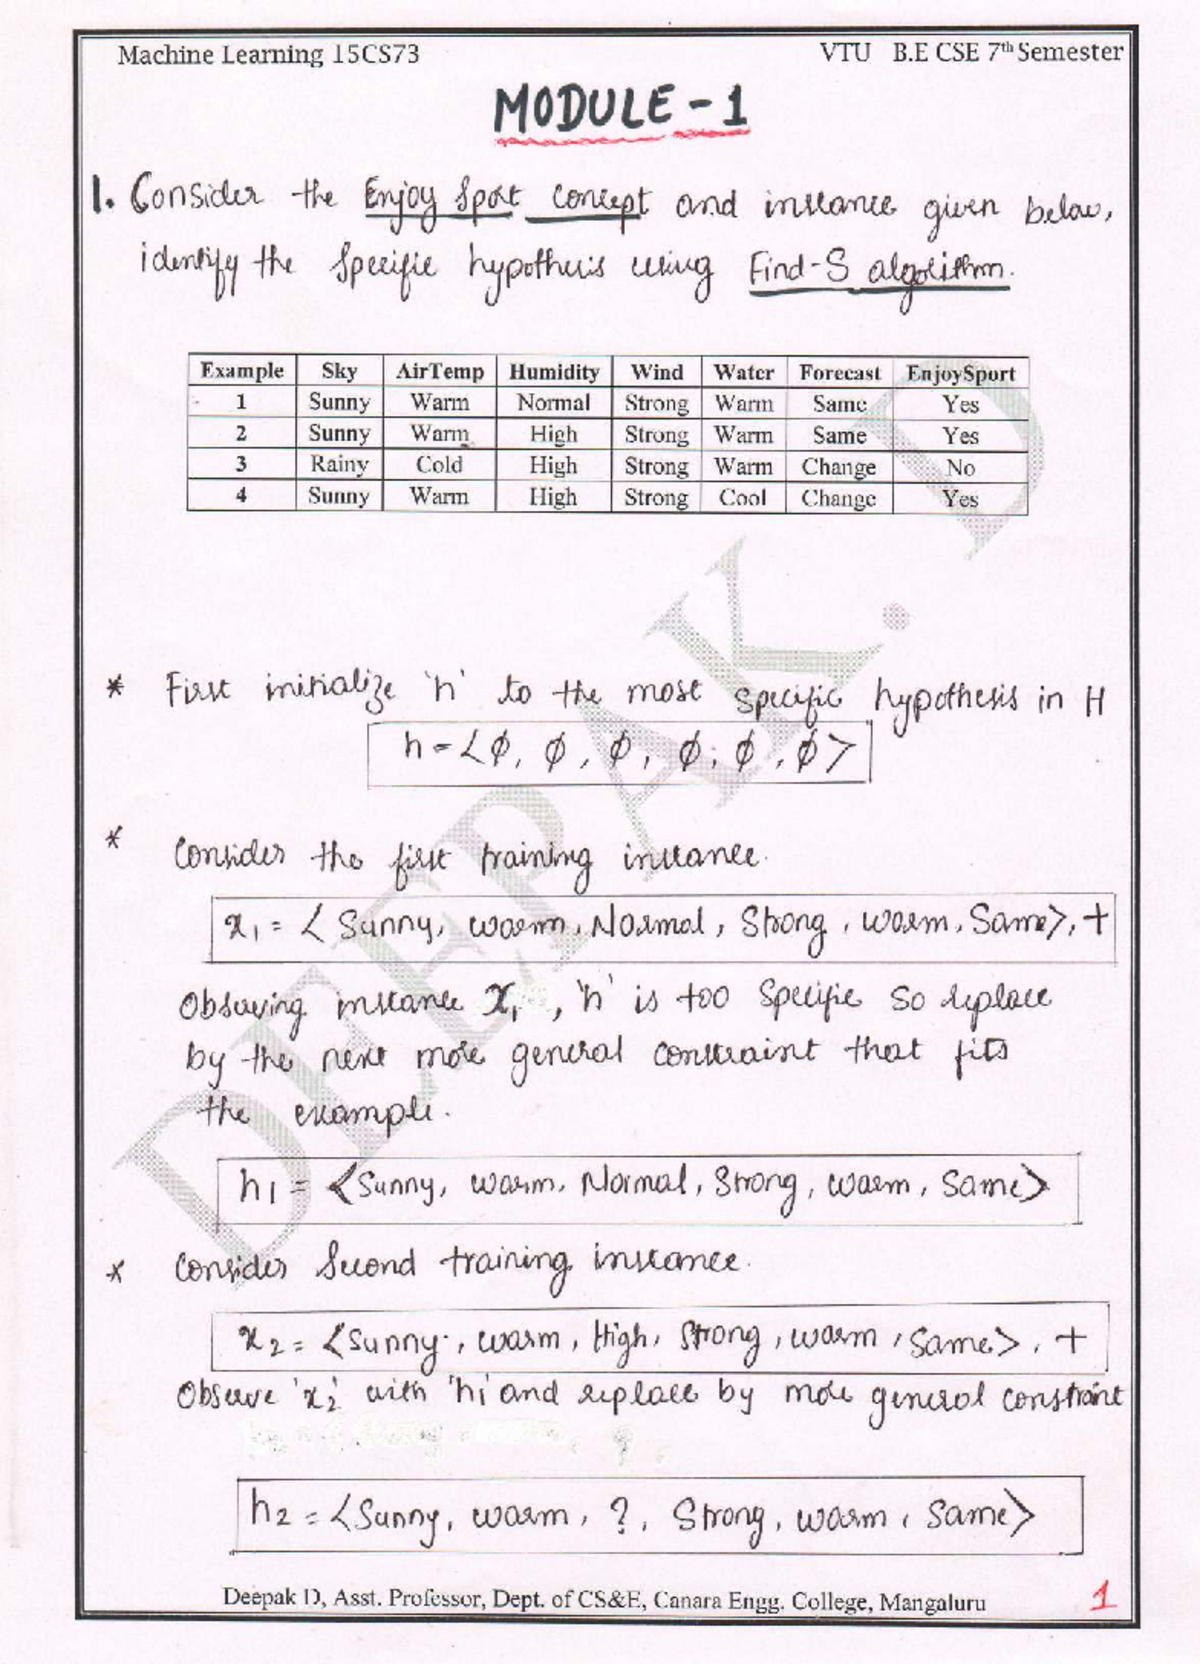 Machine Learning 15CS73 VTU B.E CSE 7th Semester
MODULE - 1
1. Consider the Enjoy Sport concept and instance given below,
identify the Specific hypothesis using Find-S algorithm.
Example Sky AirTemp Humidity Wind Water Forecast EnjoySport
1 Sunny Warm Normal Strong Warm Same Yes
2 Sunny Warm High Strong Warm Same Yes
3 Rainy Cold High Strong Warm Change No
4 Sunny Warm High Strong Cool Change Yes
* First initialize 'h' to the most specific hypothesis in H
h = <ϕ, ϕ, ϕ, ϕ, ϕ, ϕ>
* Consider the first training instance.
x₁ = < Sunny, warm, Normal, Strong, warm, Same>, +
Observing instance x₁, 'h' is too specific so replace
by the next more general constraint that fits
the example.
h₁ = <Sunny, warm, Normal, Strong, warm, Same>
* Consider Second training instance.
x₂ = <Sunny, warm, High, Strong, warm, Same>, +
Observe 'x₂' with 'h₁' and replace by more general constraint
h₂ = <Sunny, warm, ?, Strong, warm, Same>
Deepak D, Asst. Professor, Dept. of CS&E, Canara Engg. College, Mangaluru 1
DEEPAK. D